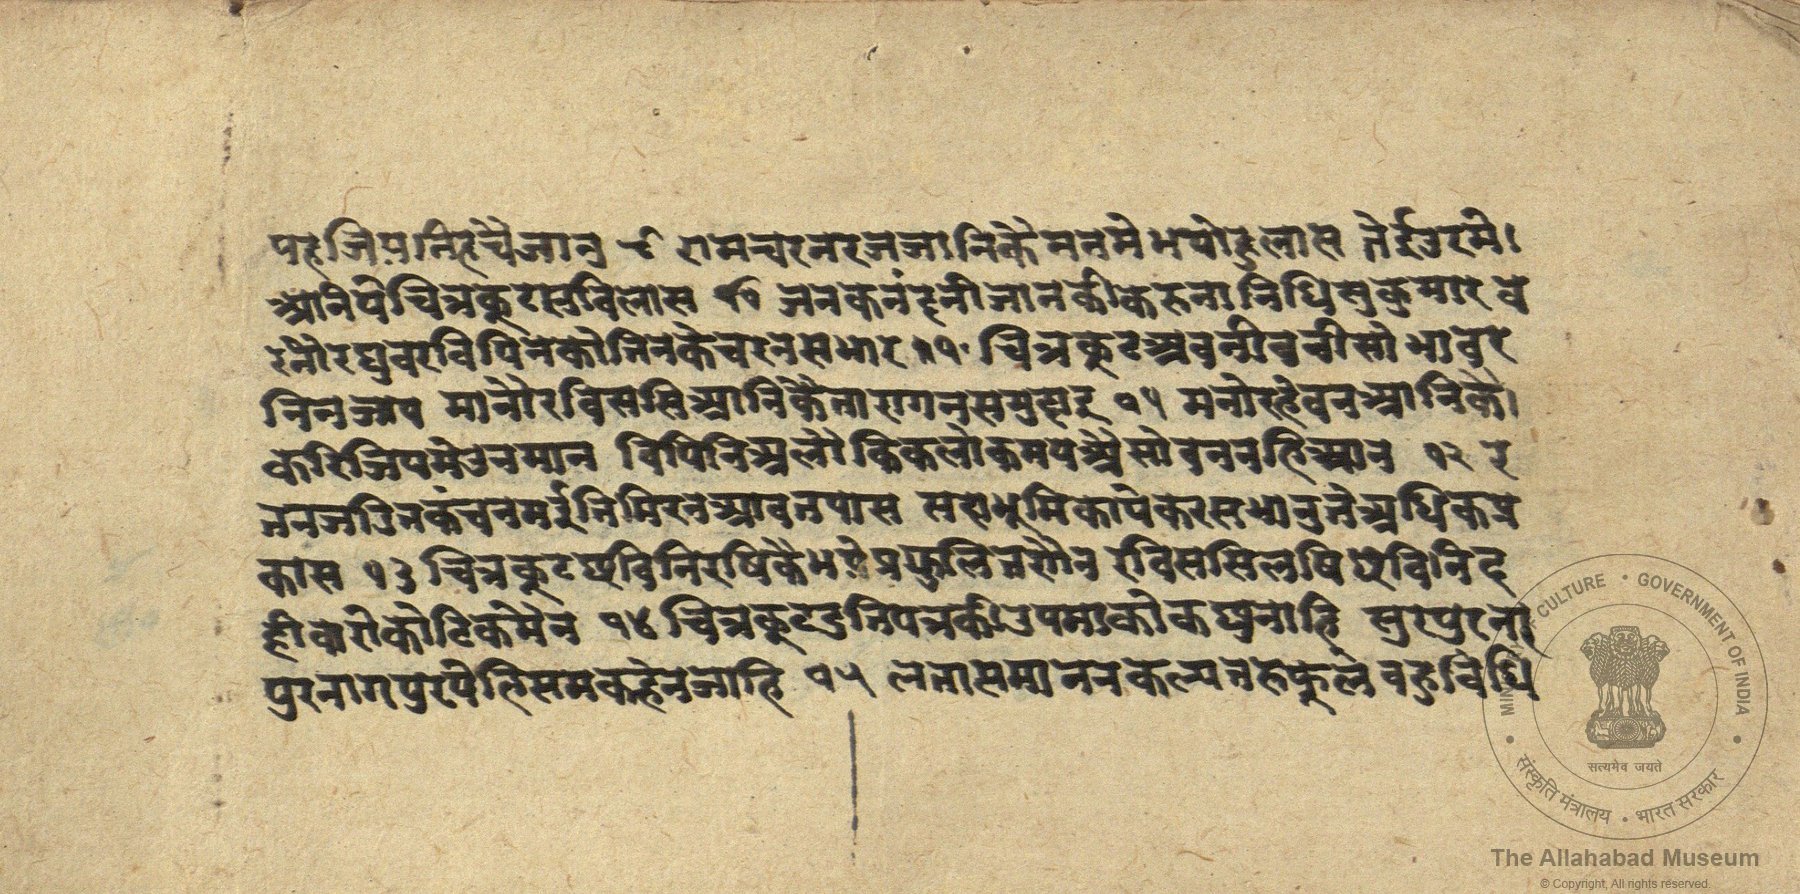 पहजियनिहचैजान ८ रामचरनरजजानिकैमनमेभयोहुलास तेईउरमे।
आनियेचित्रकुटसुविलास ९ जनकनंदनीजानकीकरुनानिधिसुकुमार व
रनौरघुवरविपिनकोतिनकेचरनसभार १० चित्रकुटअवनीवनीसोभावर
निनजाय मानौरविससिआनिकैतारागन १९ मनोरहेवनआनिकै।
करिजियमेउनमान विपिनिअलौकिकलोकमयअैसोवननहिआन १२ र
तनजटितकंचनमई आवनपास सहाभूमिकाये तेअधिकप्र
कास १३ चित्रकुटछविनिरषिकैभयेप्रफुलित रविससिलषिछविनिद
हीवारोकोटिकमैन १४ चित्रकुटउनिपत्रकीउपमाकोकछुनाहि सुरपुरना
पुरनागपुरयेतिसमकहेनजाहि १५ लतासमाननकल्पतरुफुले वहुविधि
MINISTRY OF CULTURE • GOVERNMENT OF INDIA
सत्यमेव जयते
संस्कृति मंत्रालय • भारत सरकार
The Allahabad Museum
© Copyright, All rights reserved.